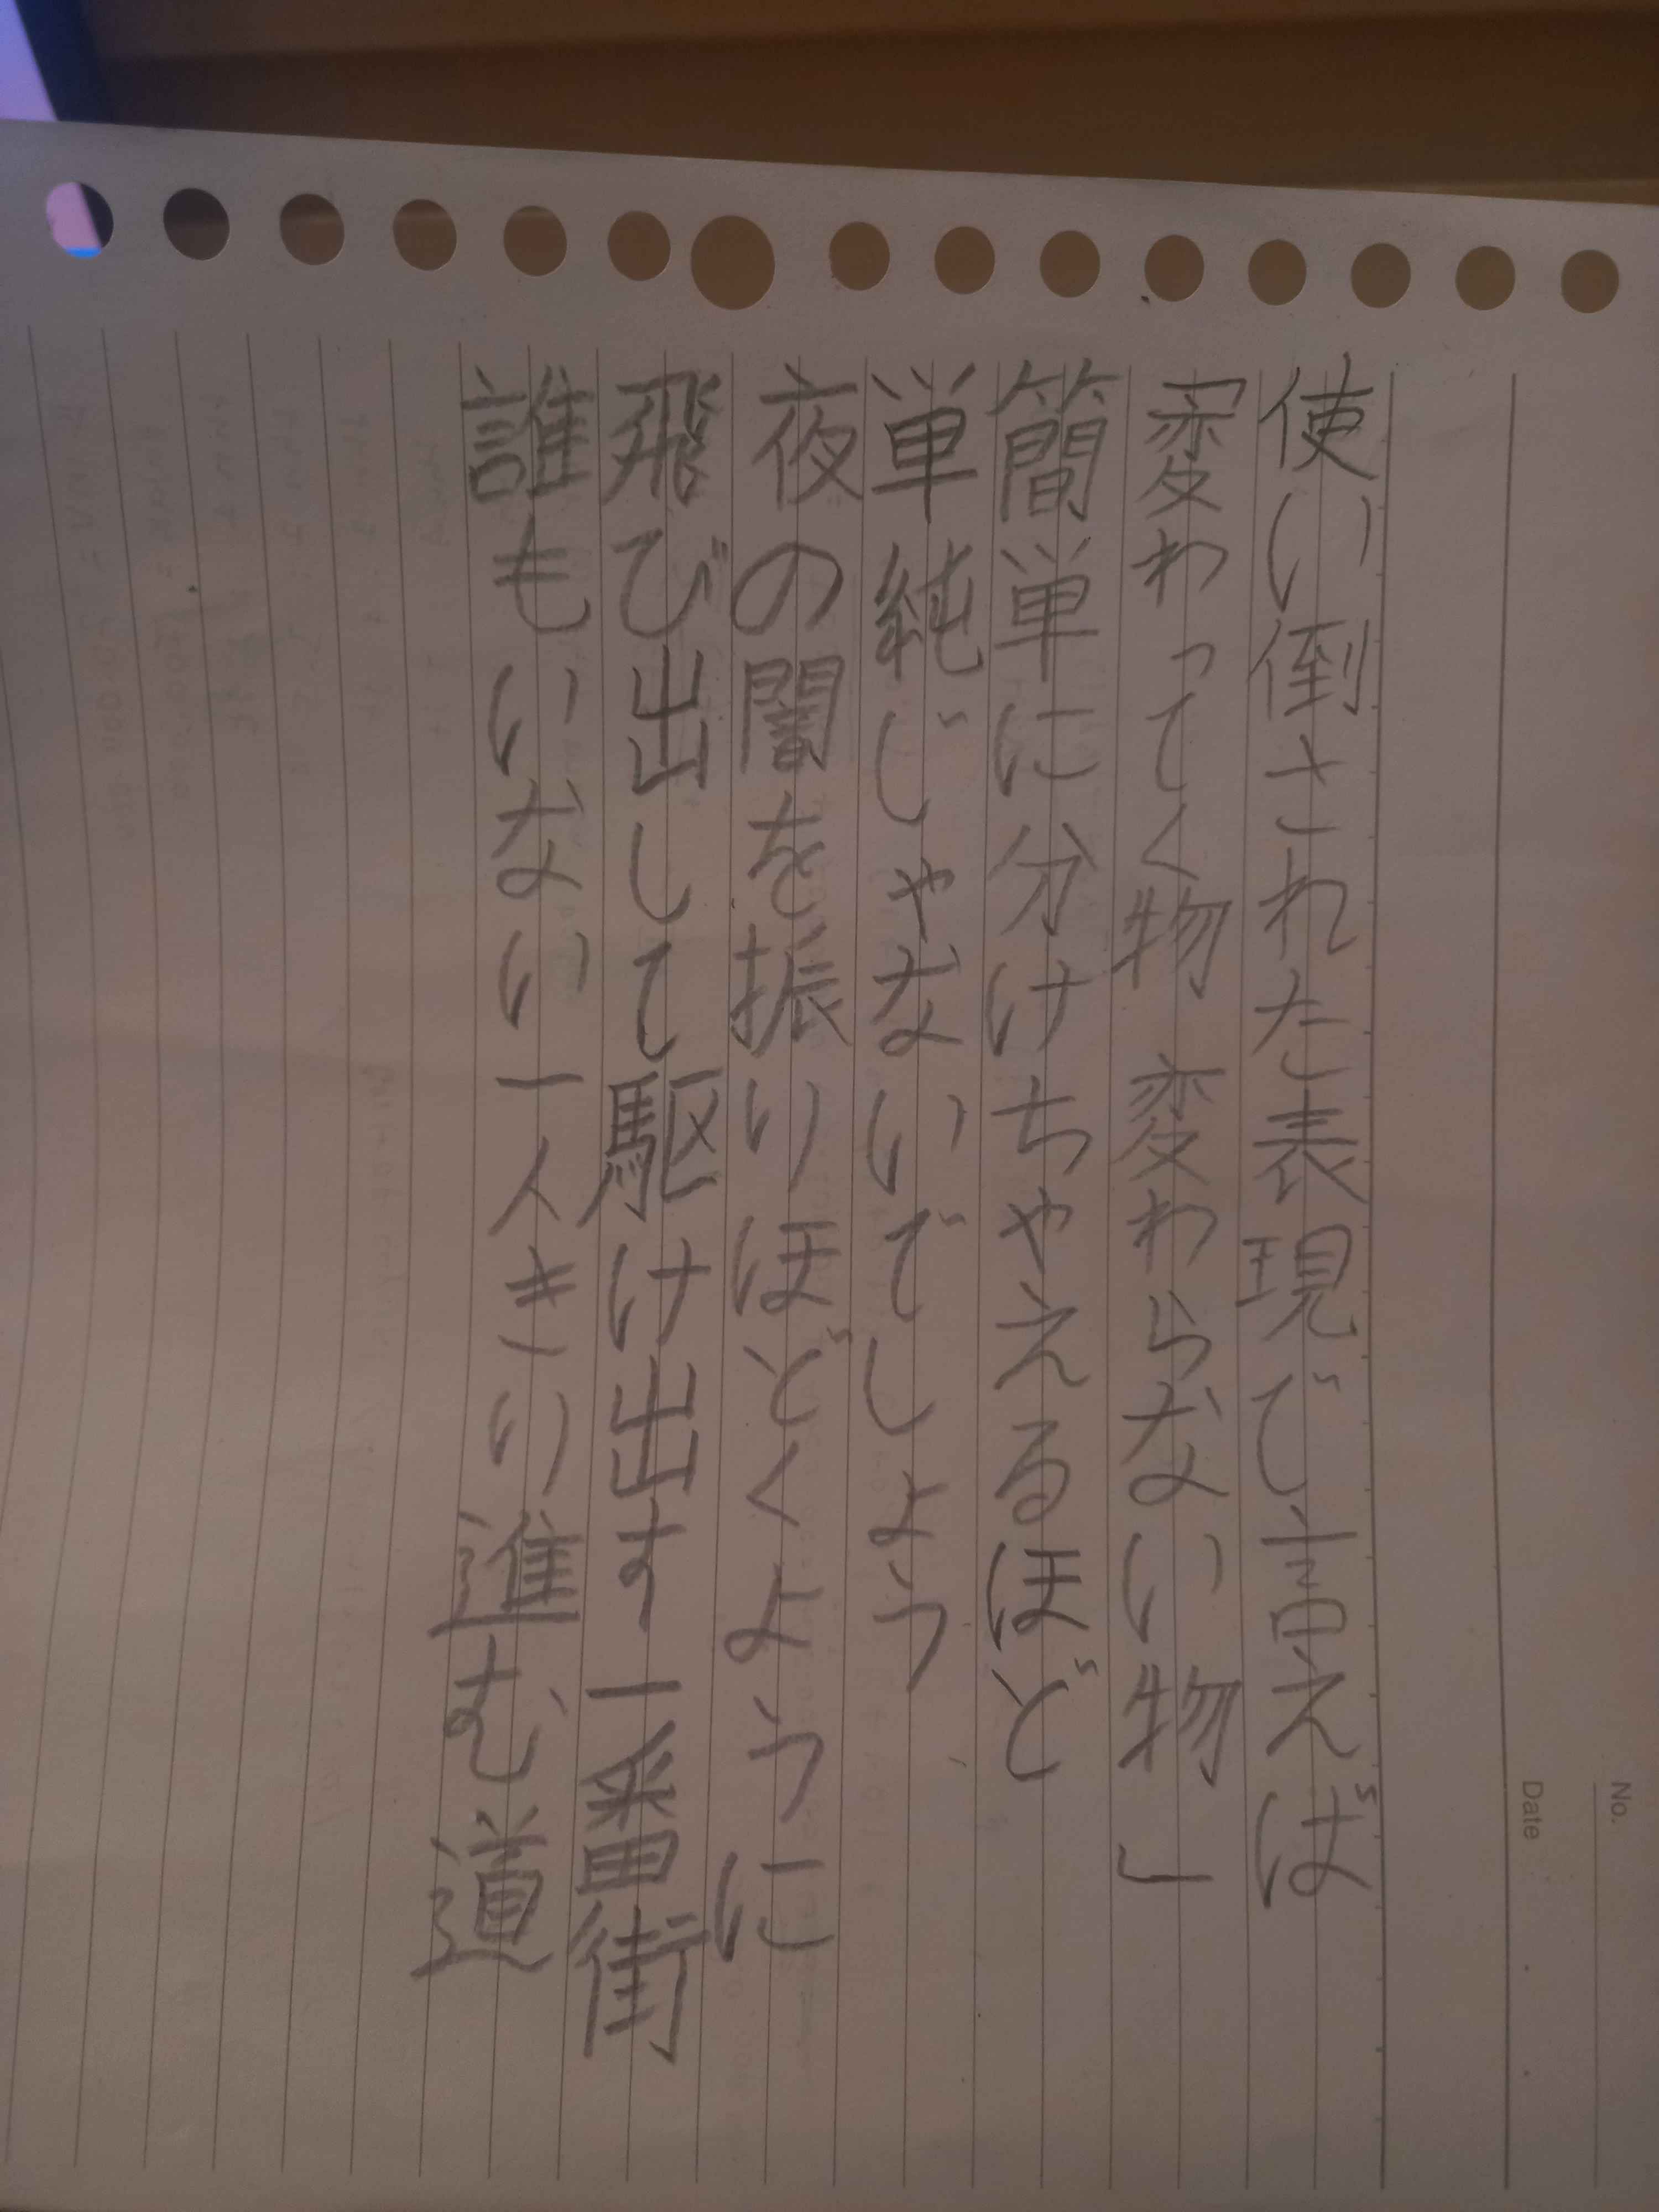 No.
Date
使い倒された表現で言えば
「変わってく物 変わらない物」
簡単に分けちゃえるほど
単純じゃないでしょう
夜の闇を振りほどくように
飛び出して駆け出す一番街
誰もいない一人きり進む道